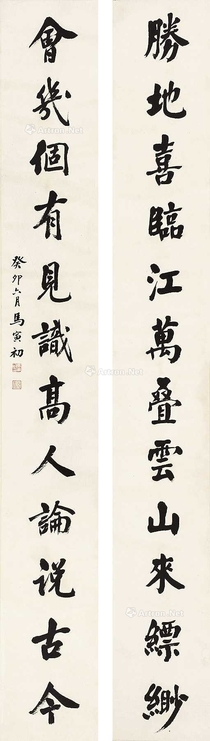 勝地喜臨江萬叠雲山來縹緲
會幾個有見識高人論说古今
癸卯六月馬寅初